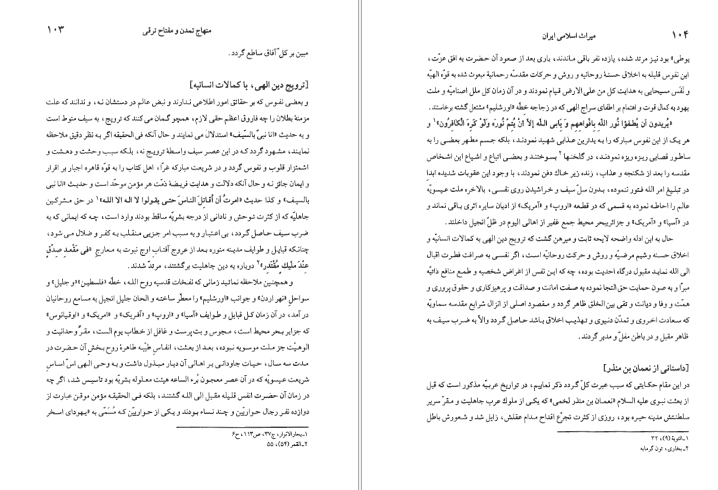 ۱۰۳
منهاج تمدن و مفتاح ترقی
مبین بر کل آفاق ساطع گردد.
[ترویج دین الهی، با کمالات انسانیه]
و بعضی نفوس که بر حقائق امور اطلاعی ندارند و نبض عالم در دستشان نه، و ندانند که علت
مزمنهٔ بطلان را چه فاروق اعظم حقی لازم، همچون گمان می‌کنند که ترویج، به سیف منوط است
و به حدیث «انا نبیّ بالسّیف» استدلال می نمایند و حال آنکه فی الحقیقه اگر به نظر دقیق ملاحظه
نمایند، مشهود گردد که در این عصر سیف واسطهٔ ترویج نه، بلکه سبب وحشت و دهشت و
اشمئزاز قلوب و نفوس گردد و در شریعت مبارکه غرّاء، اهل کتاب را به قوّه قاهره اجبار بر اقرار
و ایمان جائز نه و حال آنکه دلالت و هدایت فریضهٔ ذمّت هر مؤمن موحّد است و حدیث «انا نبی
بالسیف» و کذا حدیث «امرتُ أن أُقاتلَ النّاسَ حتی یقولوا لا اله الا الله»۱ در حق مشرکین
جاهلیّه که از کثرت توحش و نادانی از درجه بشریّه ساقط بودند وارد است، چه که ایمانی که به
ضرب سیف حاصل گردد، بی اعتبار و به سبب امر جزیی منقلب به کفر و ضلال می شود،
چنانکه قبایل و طوایف مدینه منوره بعد از عروج آفتاب اوج نبوت به معارج «فی مَقْعَدِ صِدْقٍ
عِنْدَ مَلیكٍ مُقْتَدِرٍ»۲ دوباره به دین جاهلیت برگشتند، مرتدّ شدند.
و همچنین ملاحظه نمائید زمانی که نفحات قدسیه روح الله، خطّه «فلسطین» «و جلیل» و
سواحل «نهر اردن» و جوانب «اورشلیم» را معطّر ساخته و الحان جلیل انجیل به مسامع روحانیان
در آمد، در آن زمان کل قبایل و طوایف «آسیا» و «اروپ» و «آفریک» و «امریک» و «اوقیانوس»
که جزایر بحر محیط است، مجوس و بت‌پرست و غافل از خطاب یوم الست، مقرّ وحدانیت و
الوهیّت جز ملت موسویه نبوده، بعد از بعثت، انفاس طیّبه طاهرهٔ روح بخش آن حضرت در
مدت سه سال، حیات جاودانی بر اهالی آن دیار مبذول داشت و به وحی الهی اسّ اساس
شریعت عیسویّه که در آن عصر معجون بُرء الساعه هیئت معلوله بشریّه بود تأسیس شد، اگر چه
در زمان آن حضرت انفس قلیله مقبل الی الله گشتند، بلکه فی الحقیقه مؤمن موقن عبارت از
دوازده نفر رجال حواریّین و چند نساء بودند و یکی از حواریّین که مُسمّی به «یهودای اسخر
۱ـ بحارالانوار، ج۳۷، ص۱۱۳، ح۶
۲ـ القمر (۵۴)، ۵۵
میراث اسلامی ایران
۱۰۴
یوطی» بود نیز مرتد شده، یازده نفر باقی ماندند، باری بعد از صعود آن حضرت به افق عزّت،
این نفوس قلیله به اخلاق حسنهٔ روحانیه و روش و حرکات مقدسه رحمانیهٔ مبعوث شده به قوّه الهیّه
و نَفَس مسیحایی به هدایت کل من علی الارض قیام نمودند و در آن زمان کل ملل اصنامیّه و ملت
یهود به کمال قوت و اهتمام بر اطفای سراج الهی که در زجاجه خطّه «اورشلیم» مشتعل گشته برخاستند.
«یُریدونَ أن یُطفئوا نُورَ اللّٰهِ بِأفواهِهِم وَ یأبی اللّٰه إلّا أنْ یُتمَّ نُورَهُ وَلَوْ کَرِهَ الْکافِرُونَ»۱ و
هر یک از این نفوس مبارکه را به بدترین عذابی شهید نمودند، بلکه جسم مطهر بعضی را به
ساطور قصابی ریزه ریزه نمودند، در گلخنها۲ بسوختند و بعضی اتباع و اشیاع این اشخاص
مقدسه را بعد از شکنجه و عذاب، زنده زیر خاک دفن نمودند، با وجود این عقوبات شدیده ابداً
در تبلیغ امر الله فتور ننموده، بدون سلّ سیف و خراشیدن روی نفسی، بالاخره ملت عیسویّه
عالم را احاطه نموده به قسمی که در قطعه «اروپ» و «آمریک» از ادیان سایره اثری باقی نماند و
در «آسیا» و «آفریک» و جزایر بحر محیط جمع غفیر از اهالی الیوم در ظلّ انجیل داخلند.
حال به این ادله واضحه لایحه ثابت و مبرهن گشت که ترویج دین الهی به کمالات انسانیه و
اخلاق حسنه و شیم مرضیّه و روش و حرکت روحانیه است، اگر نفسی به صرافت فطرت اقبال
الی الله نماید مقبول درگاه احدیت بوده، چه که این نفس از اغراض شخصیه و طمع منافع ذاتیّه
مبرا و به صون حمایت حق التجا نموده به صفت امانت و صداقت و پرهیزکاری و حقوق پروری و
همّت و وفا و دیانت و تقی بین الخلق ظاهر گردد و مقصود اصلی از انزال شرایع مقدسه سماویّه
که سعادت اخروی و تمدّن دنیوی و تهذیب اخلاق باشد حاصل گردد و الّا به ضرب سیف به
ظاهر مقبل و در باطن مغلّ و مدبر گردند.
[داستانی از نعمان بن منذر]
در این مقام حکایتی که سبب عبرت کلّ گردد ذکر نماییم، در تواریخ عربیّه مذکور است که قبل
از بعثت نبوی علیه السلام «نعمان بن منذر لخمی» که یکی از ملوك عرب جاهلیت و مقر سریر
سلطنتش مدینه حیره بود، روزی از کثرت تجرّع اقتداح مدام عقلش، زایل شد و شعورش باطل
۱ـ التوبة (۹)، ۳۲
۲ـ بخاری، تون گرمابه